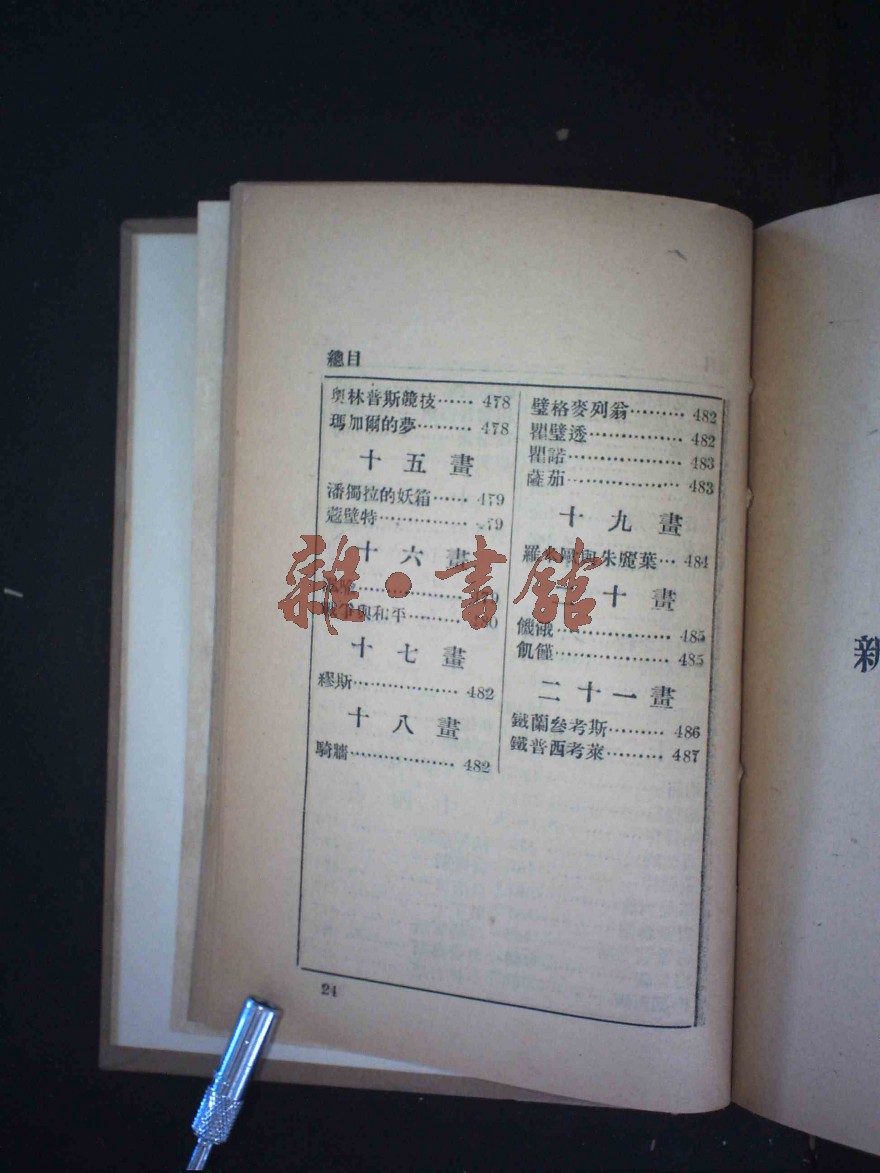 總目
奧林普斯競技…… 478
瑪加爾的夢……… 478
十五畫
潘獨拉的妖箱…… 479
蔻壁特…………… 479
十六畫
戰爭與和平……… 480
十七畫
繆斯……………… 482
十八畫
騎牆……………… 482
璧格麥列翁……… 482
瞿璧透…………… 482
瞿諾……………… 483
薩茄……………… 483
十九畫
羅米歐與朱麗葉… 484
二十畫
饑餓……………… 485
飢饉……………… 485
二十一畫
鐵蘭參考斯……… 486
鐵普西考萊……… 487
24
新
雜·書館